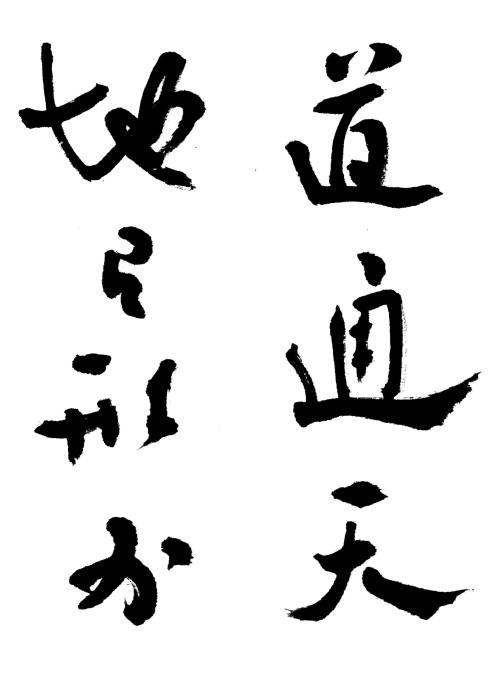 道通天
地有形外